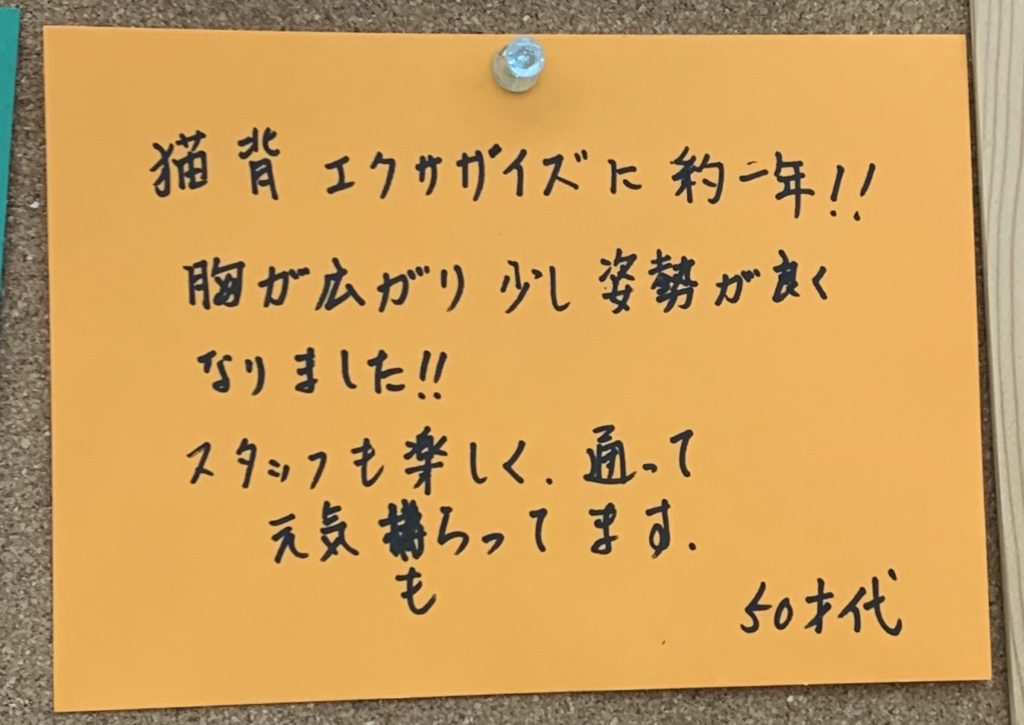 猫背 エクササイズに 約二年!!
胸が広がり 少し 姿勢が良く
なりました!!
スタッフも楽しく. 通って
元気もらってます.
50才代